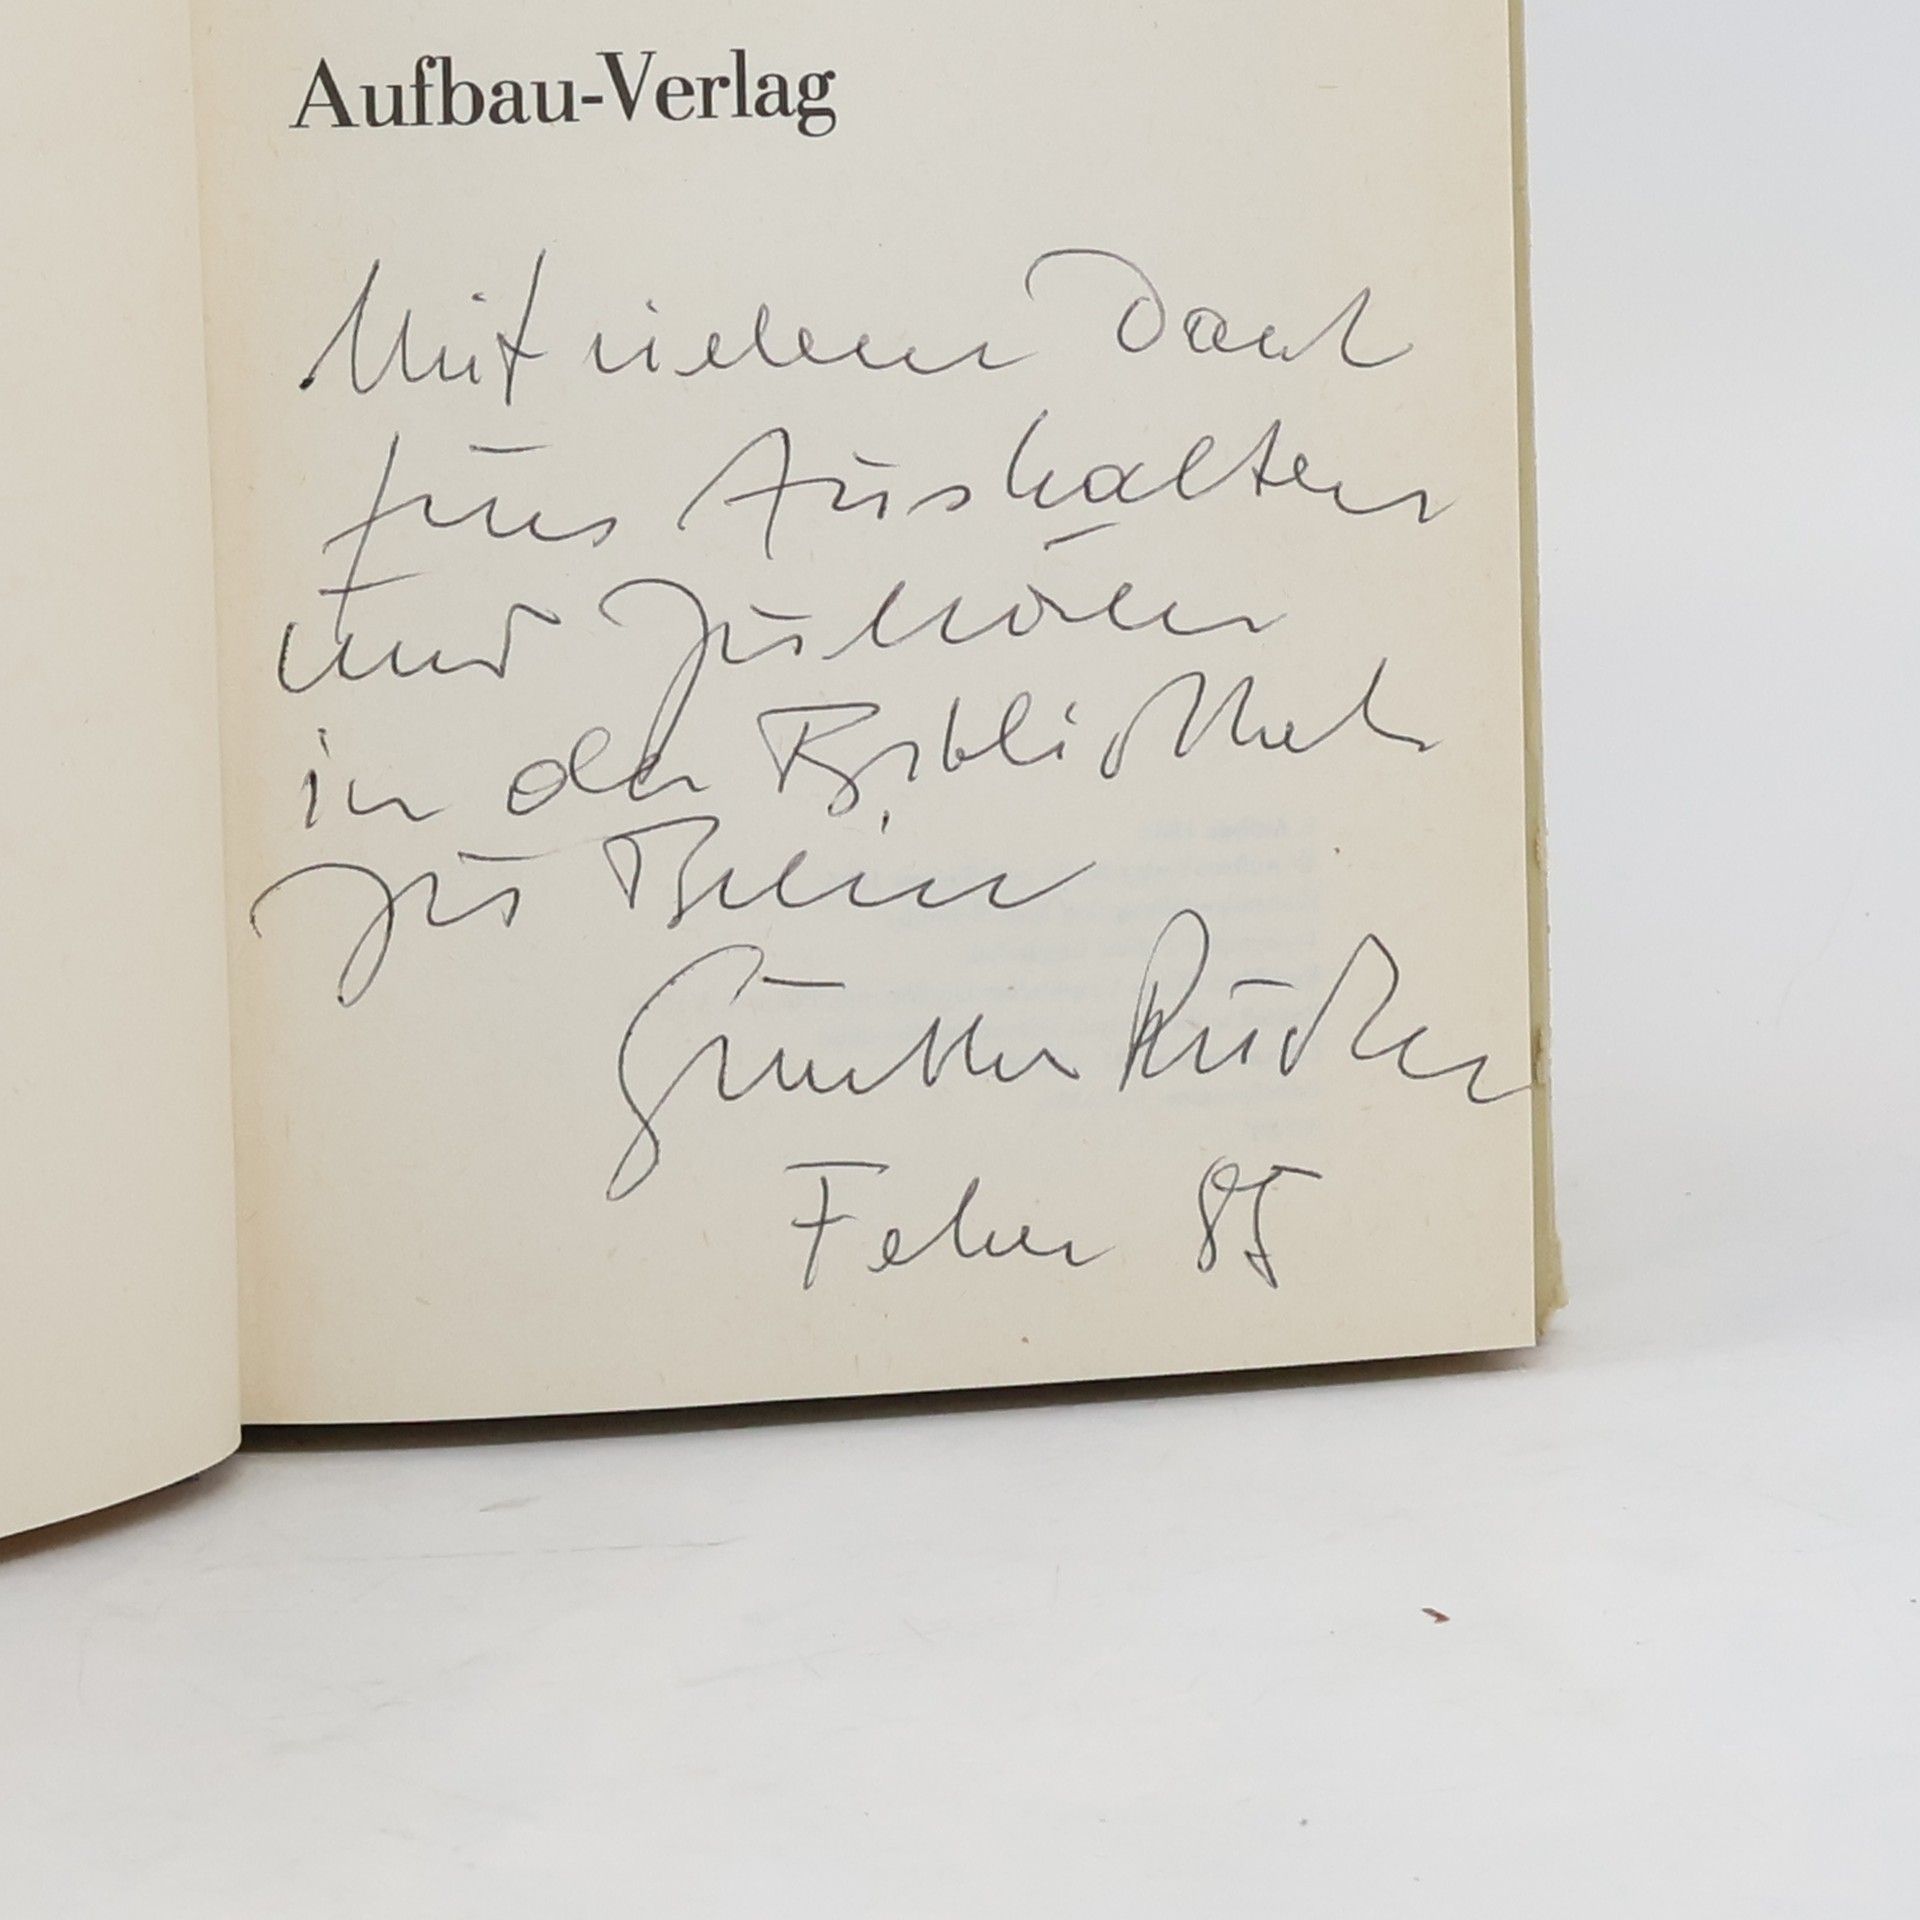 Aufbau-Verlag
Mit vielem Dank
fürs Aushalten
und Zuhören
in der Bibliothek
zu Berlin
Günther Rücker
Feber 85